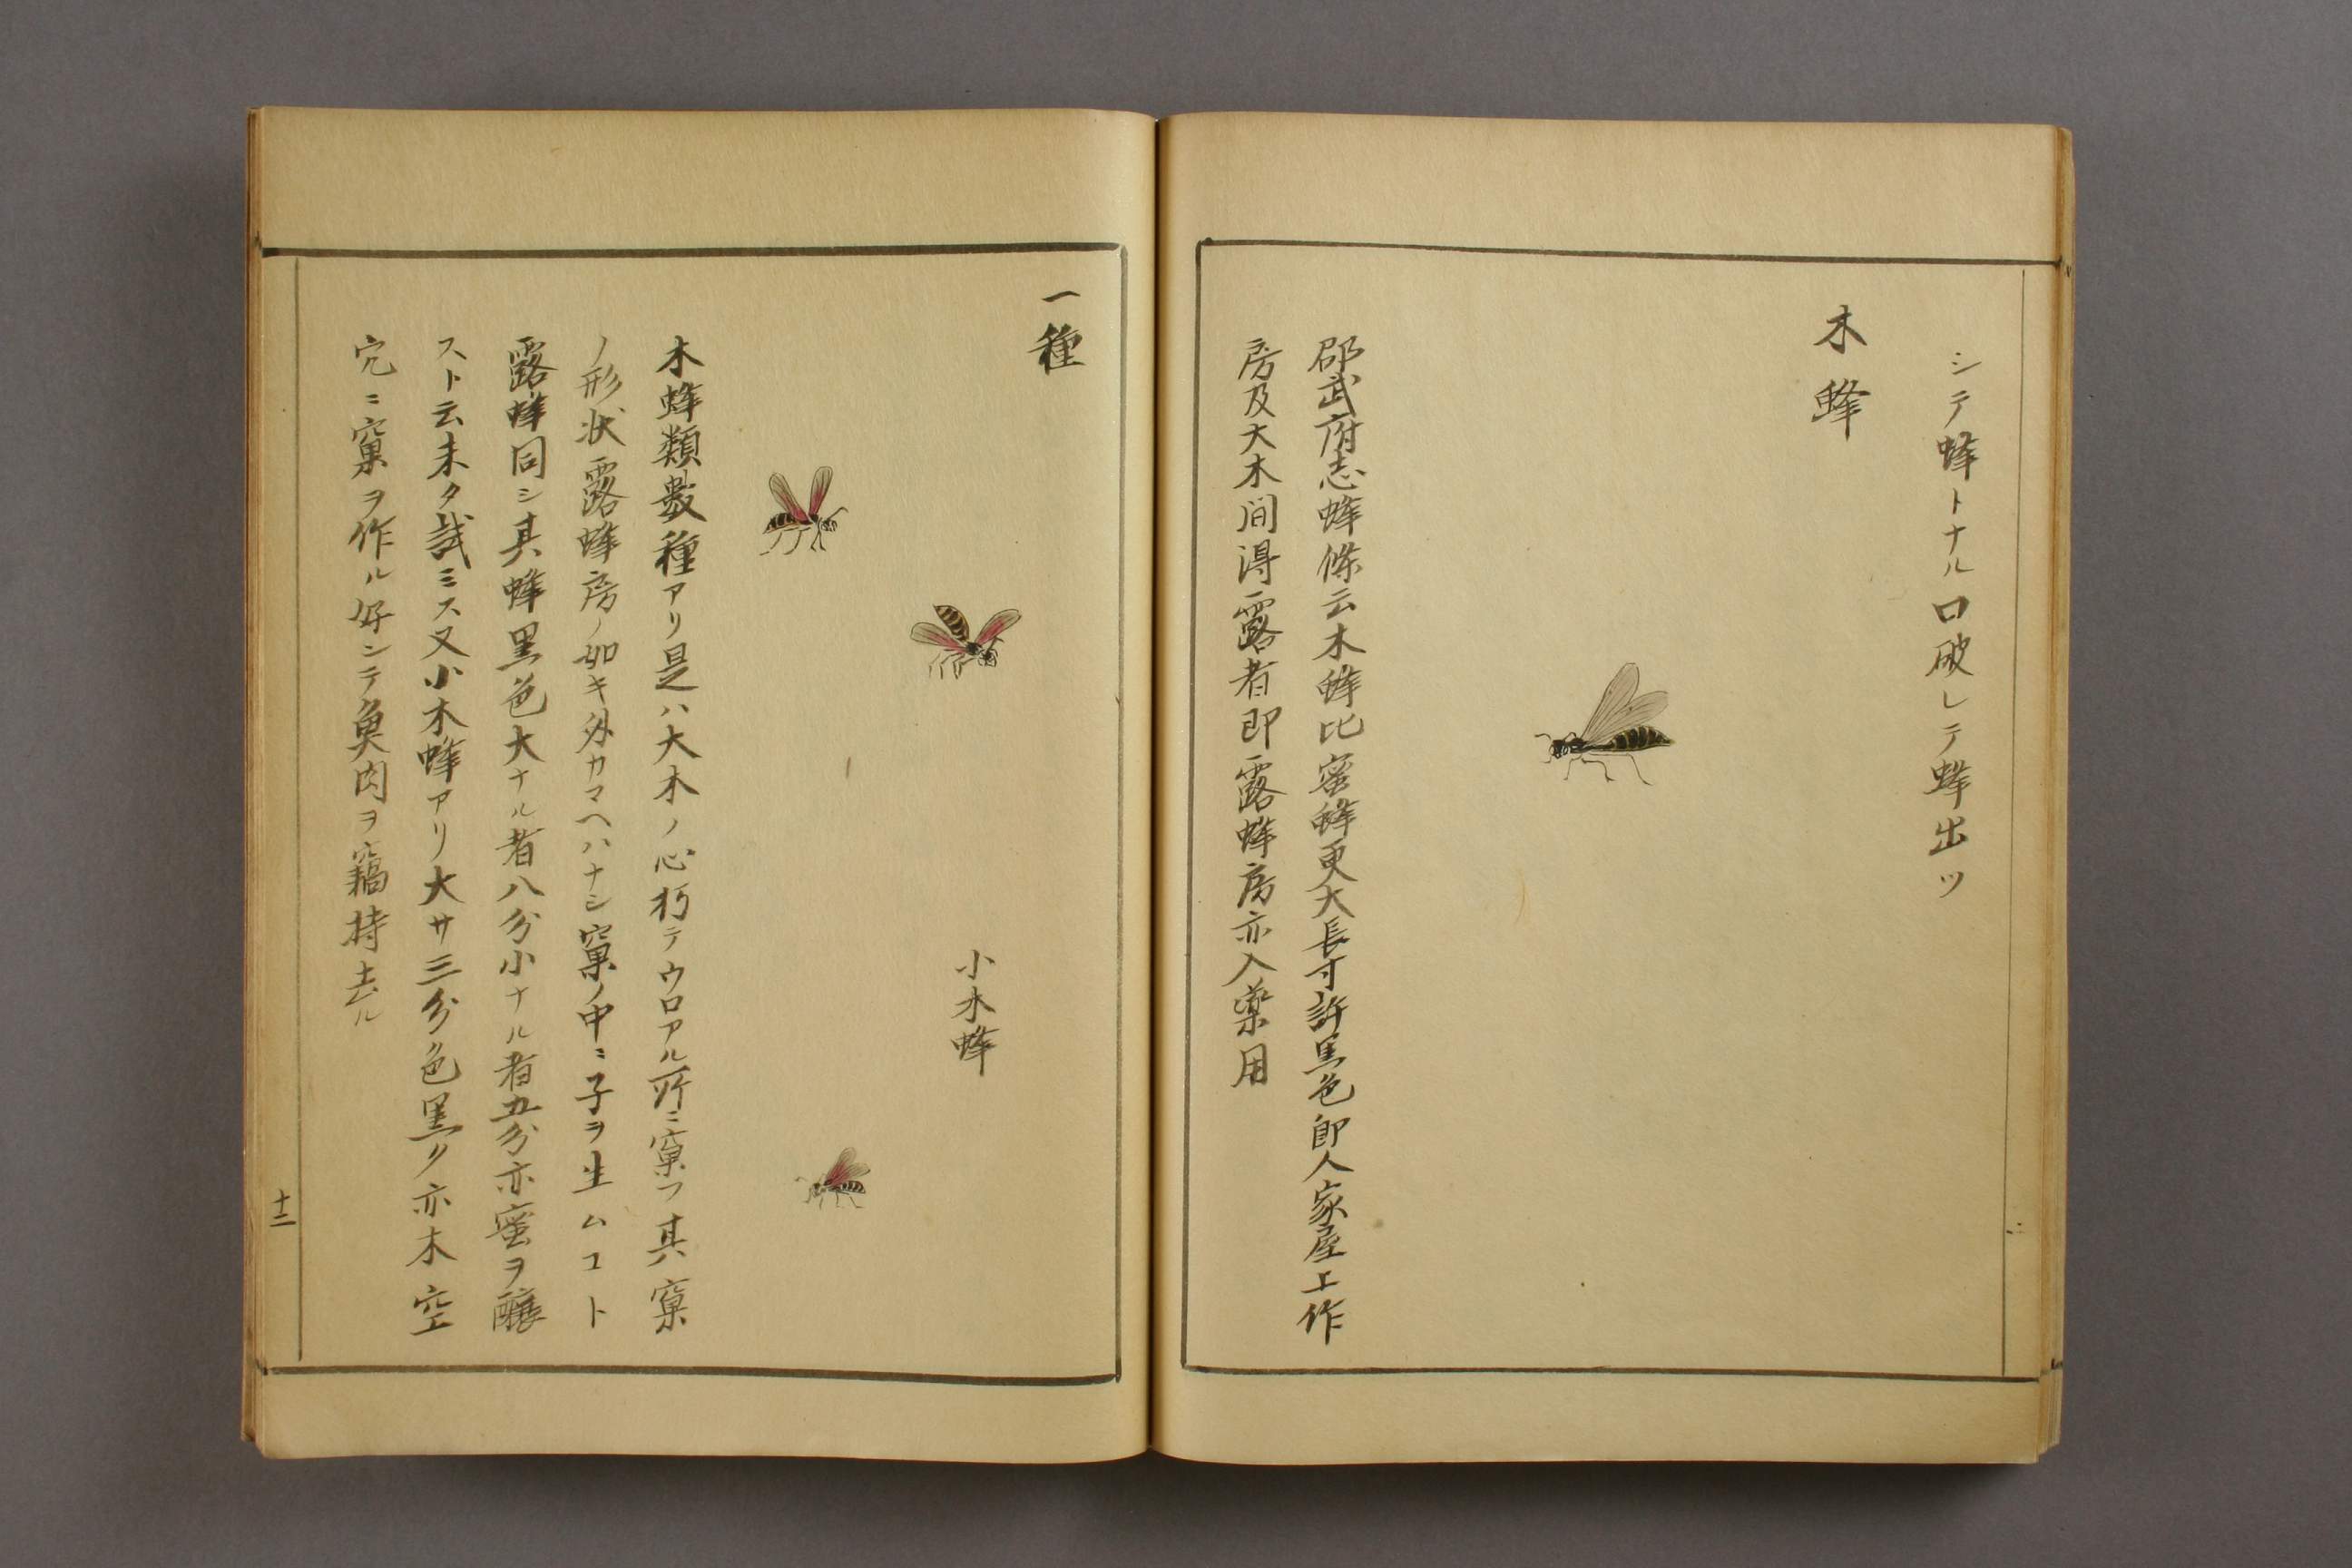 シテ蜂トナル口破レテ蜂出ツ
木蜂
邵武府志蜂條云木蜂比蜜蜂更大長寸許黒色即人家屋上作
房及大木間得露者即露蜂房亦入薬用
一種
小木蜂
木蜂類數種アリ是ハ大木ノ心朽テウロアル所ニ窠フ其窠
ノ形状露蜂房ノ如キ外カマヘハナシ窠ノ中ニ子ヲ生ムコト
露蜂同シ其蜂黒色大ナル者八分小ナル者五分亦蜜ヲ醸
スト云未タ試ミス又小木蜂アリ大サ三分色黒ク亦木空
穴ニ窠ヲ作ル好ンテ魚肉ヲ竊持去ル
十二